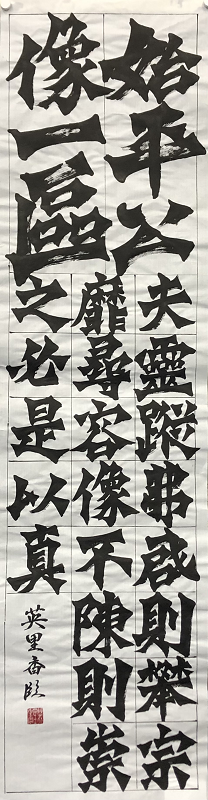 始平公
像一區
夫靈蹤弗啓則攀宗
靡尋容像不陳則崇
之必是以真
英里香臨